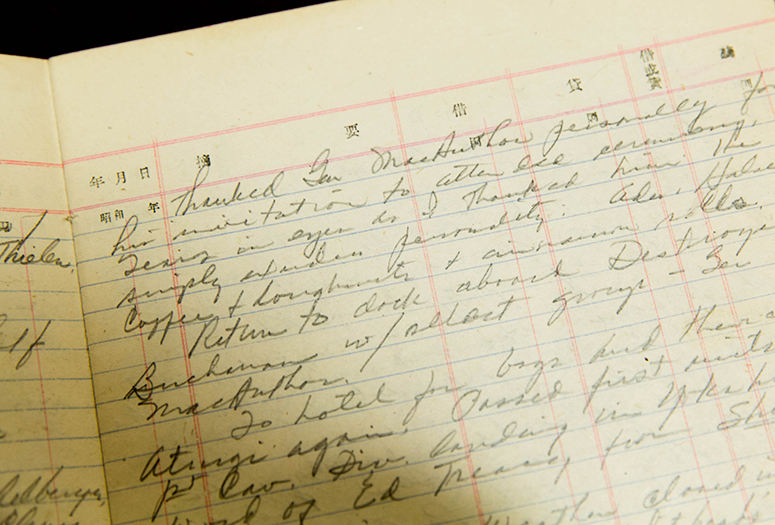 年月日 摘 要 借 貸 借或貸
昭和 年
Thanked Gen MacArthur personally for
his invitation to attend ceremony,
Tears in eyes as I thanked him. The
simply exudes personality. Adm. Halsey
Coffee + doughnuts + cinnamon rolls.
Return to dock aboard Destroyer
Buchanan w/ select group - Gen
MacArthur.
To hotel for bags and then
Atsugi again. Passed first units
1st Cav. Div. landing in Yokoh
word of Ed Treacy from
closed in
Thielen,